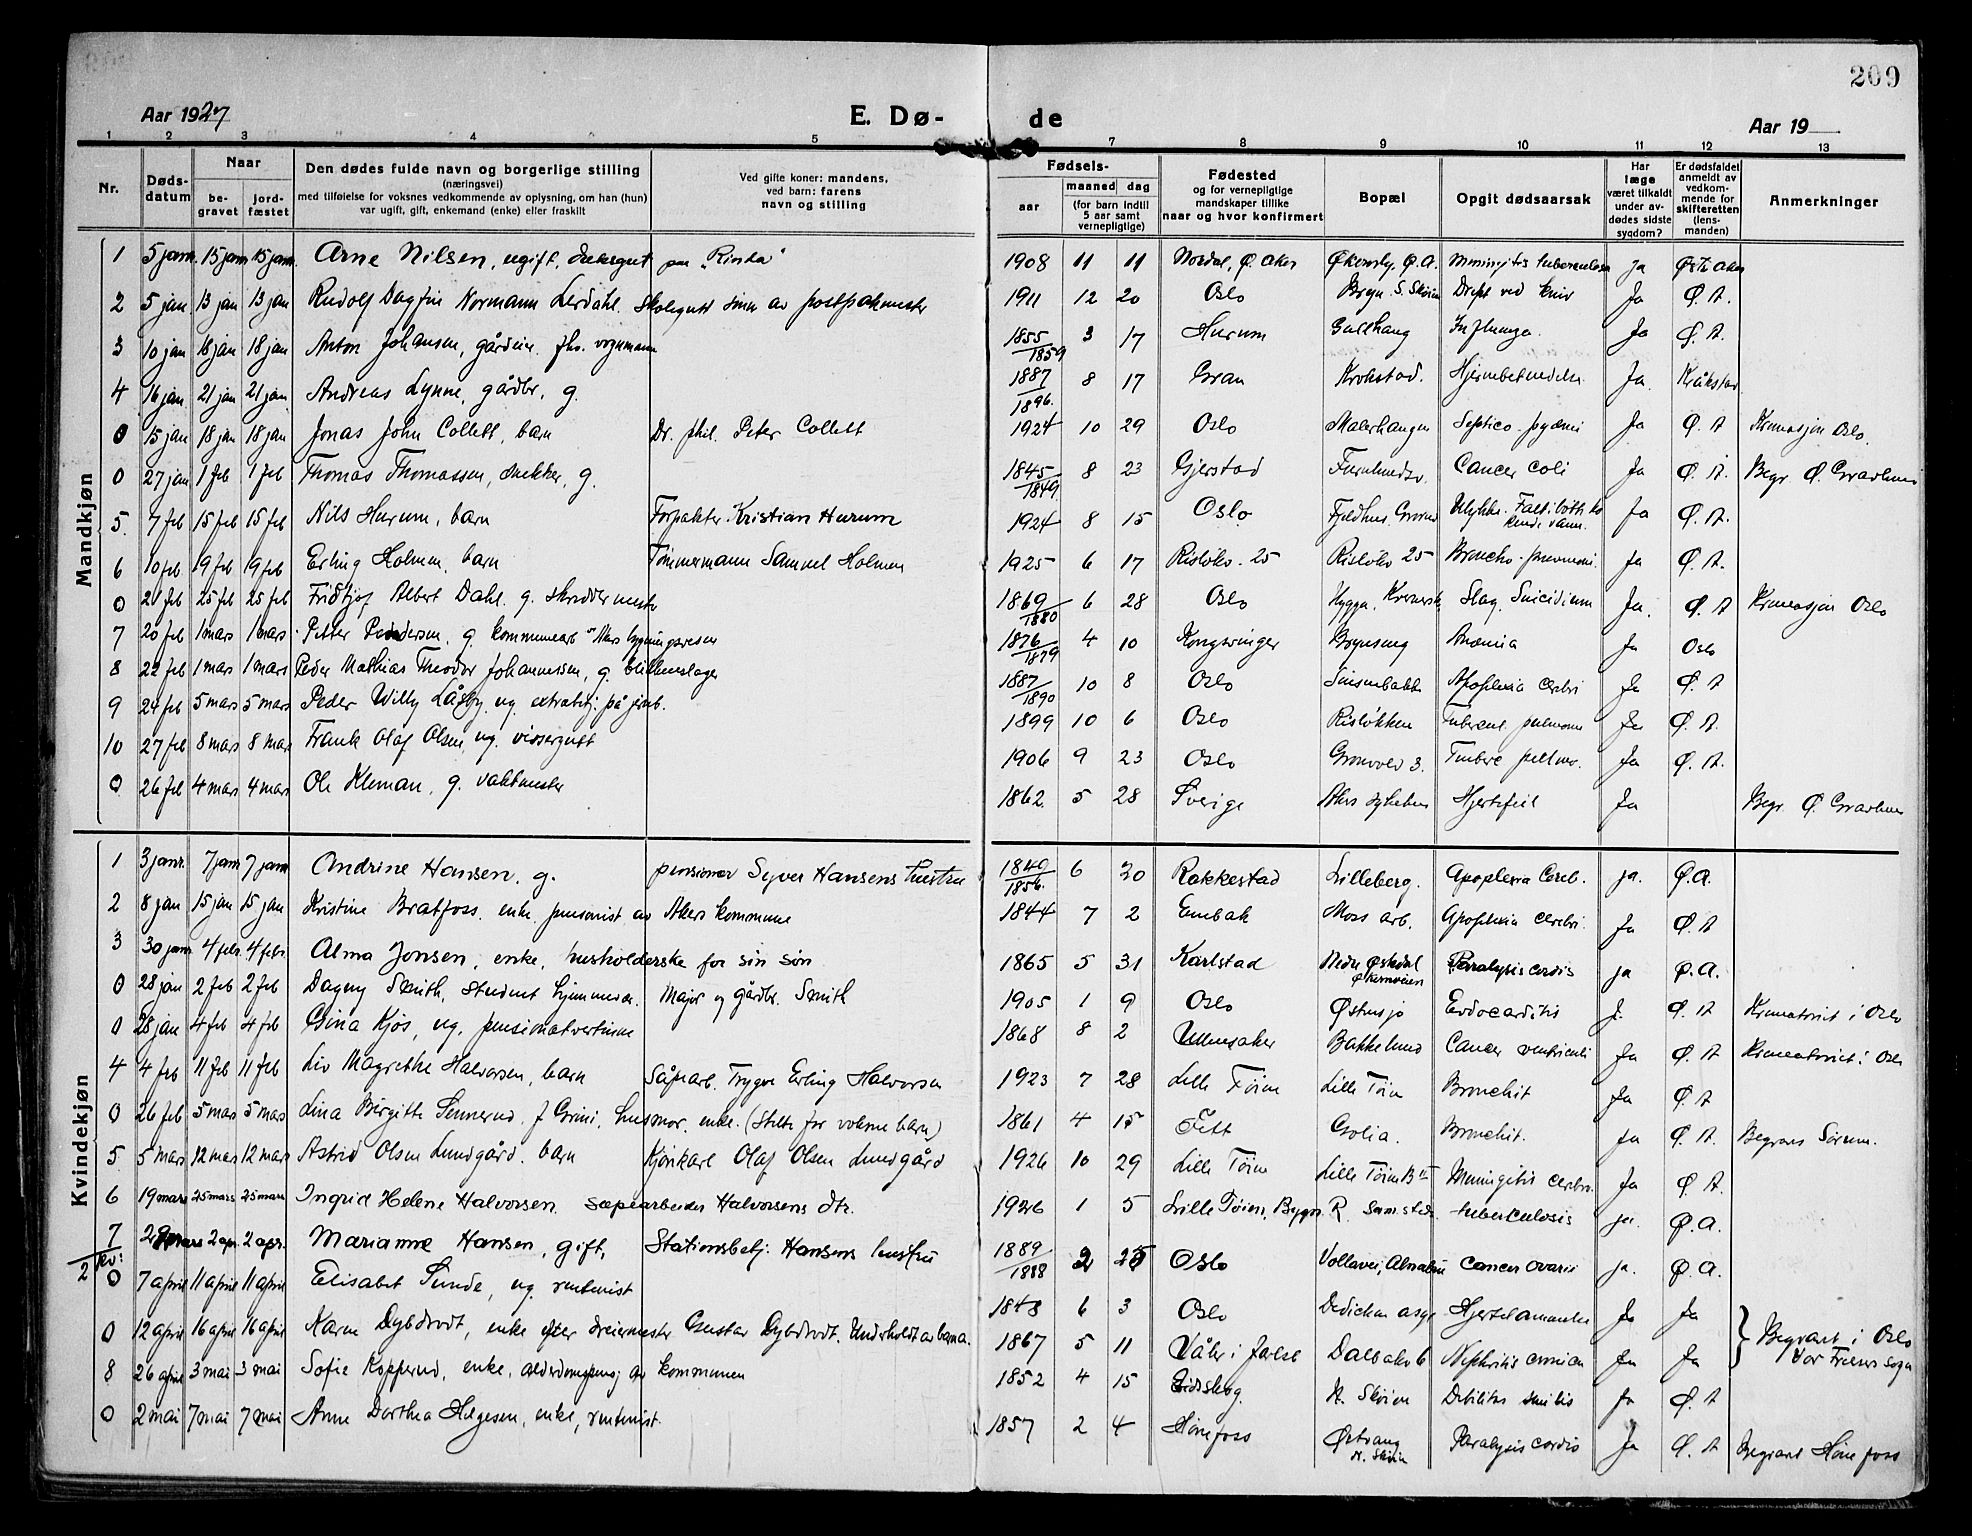 209
Aar 1927 E. Dø- de Aar 19
1 2 3 4 5 7 8 9 10 11 12 13
Nr.
Døds-datum
Naar
be-gravet
jord-fæstet
Den dødes fulde navn og borgerlige stilling
(næringsvei)
med tilføielse for voksnes vedkommende av oplysning, om han (hun)
var ugift, gift, enkemand (enke) eller fraskilt
Ved gifte koner: mandens,
ved barn: farens
navn og stilling
Fødsels-
aar
maaned
dag
(for barn indtil
5 aar samt
vernepligtige)
Fødested
og for vernepligtige
mandskaper tillike
naar og hvor konfirmert
Bopæl
Opgit dødsaarsak
Har
læge
været tilkaldt
under av-
dødes sidste
sygdom?
Er dødsfaldet
anmeldt av
vedkom-
mende for
skifteretten
(lens-
manden)
Anmerkninger
Mandkjøn
1 5 janr. 15 janr 15 janr. Arne Nilsen, ugift, dæksgut paa "Rinda" 1908 11 11 Nordal, Ø. Aker Ø. A. Meningitis tuberculosa ja Østr. Aker
2 5 jan 13 jan 13 jan Rudolf Dagfin Normann Lerdahl. Skolegutt sønn av postpakmester 1911 12 20 Oslo Bryn S. Skøien Drept ved kniv Ja Ø. A.
3 10 jan 18 jan 18 jan Anton Johansen, gårdein. fhv. vognmann 1855/1859 3 17 Hurum Gullhaug Influenza Ja Ø. A.
4 16 jan 21 jan 21 jan Andreas Lynne, gårdbr, g. 1887/1896 8 17 Gran Krokstad. Hjernebetendelse Ja. Kråkstad
0 15 jan 18 jan 18 jan Jonas John Collett, barn Dr. phil. Peter Collett 1924 10 29 Oslo Malerhaugen Septico-pyæmi Ja Ø. A Kremasjon Oslo.
0 27 jan 1 feb 1 feb Thomas Thomassen, snekker, g. 1845/1849 8 23 Gjerstad Furulundsv. Cancer coli Ja Ø. A. Begr. Ø. Gravlund
5 7 feb 15 feb 15 feb Nils Hurum, barn Forpakter Kristian Hurum 1924 8 15 Oslo Fjeldhus, Grorud Ulykke. Falt i bøtte kokende vann. Ja Ø. A.
6 10 feb 19 feb 19 feb Erling Holmen, barn Tømmermann Samuel Holmen 1925 6 17 Risløkv. 25 Risløkv 25 Broncho-pneumoni. Ja Ø. A.
0 21 feb 25 feb 25 feb Fridtjof Albert Dahl. g. skreddermester 1869/1880 6 28 Oslo Slag, Suicidium Ja. Ø. A Kremasjon Oslo
7 20 feb 1 mars 1 mars Petter Pedersen, g kommunearb Akers bygningsvesen 1876/1879 4 10 Kongsvinger Brynseng Anæmia Ja Oslo
8 22 feb 1 mars 1 mars Peder Mathias Theodor Johannessen, g. blikkenslager 1887/1890 10 8 Oslo Sinsenbakken Apoplexia cerebri Ja Ø. A
9 24 feb 5 mars 5 mars Peder Willy Låsby, ug. extrabetj. på jernb. 1899 10 6 Oslo Risløkken Tubercul. pulmonum Ja Ø. A.
10 27 feb 8 mars 8 mars Frank Olaf Olsen, ug. visergutt 1906 9 23 Oslo Gronvold 3. Tuberc pulmo. Ja Ø. A.
0 26 feb 4 mars 4 mars Ole Kleman, g. vaktmester 1862 5 28 Sverige Akers sykehus Hjertefeil Ja Begr. Ø. Gravlund
Kvindekjøn
1 3 janr. 7 janr 7 janr Andrine Hansen, g. pensioner Syver Hansens hustru 1849/1856. 6 20 Rakkestad Lilleberg. Apoplexia Cereb. ja. Ø.A.
2 8 jan 15 jan 15 jan Kristine Bratfoss. enke. pensionist av Akers kommune 1844 7 2 Enebak Moss arb. Apoplexia cerebri. Ja Ø. A
3 30 janr 4 febr. 4 febr. Alma Jonsen, enke, husholderske for sin søn 1865 5 31 Karlstad Nedre Østedal Økernveien Paralysis cordis ja Ø.A.
0 28 jan 2 feb 2 feb Dagny Smith, student hjemmevær. Major og gårdbr. Smith 1905 1 9 Oslo Østensjø Endocarditis J. Ø. A Krematoriet i Oslo
0 28 jan 4 feb 4 feb Gina Kjøs, ug, pensionatvertinne 1868 8 2 Ullensaker Bakkelund Cancer ventriculi Ja Ø. A Krematoriet i Oslo
4 4 feb 11 feb 11 feb Liv Magrethe Halvorsen, barn Såpearb. Trygve Erling Halvorsen 1923 7 28 Lille Tøien Lille Tøien Bronchit Ja Ø. A
0 26 feb 5 mars 5 mars Lina Birgitte Sennerud, f. Grini, husmor. enke. (Stelte for voksne barn) 1861 4 15 Fett Golia. Bronchit. Ja Ø. A. Begraves Sørum.
5 5 mars 12 mars 12 mars Astrid Olsen Lundgård. barn Kjørekarl Olaf Olsen Lundgård 1926 10 29 Lille Tøien Lille Tøien Meningitis cerebr. Ja Ø. A.
6 19 mars 25 mars 25 mars Ingrid Helene Halvorsen. Sæpearbeider Halvorsens dtr. 1926 1 5 Lille Tøien, Bygn. R. Samsted. tuberculosis ja. Ø.A.
7 29 mars 2 apr. 2 apr. Marianne Hansen, gift, Stationsbetj. Hansens hustru 1889/1888 2 25 Oslo Vollavei, Alnabru Cancer ovarii ja. Ø.A.
2/kv:
0 7 april 11 april 11 april Elisabet Sunde, ug. rentenist 1848 6 3 Oslo Dedichen asyl Hjertelammelse Ja Ja
0 12 april 16 april 16 april Karen Dybdrodt, enke efter dreiermester Gustav Dybdrodt. Underholdt av barna. 1867 5 11 Våler i Jarlsb Dalbakv 6 Nephritis cronica Ja Ja } Begravet i Oslo Vor Frelsers sogn
8 26 april 3 mai 3 mai Sofie Kopperud, enke, alderdomspensj av kommunen 1852 4 15 Eidskog. N. Skøien Debilitas senilis Ja Ø. A
0 2 mai 7 mai 7 mai Anne Dorthea Helgesen, enke, rentenist. 1857 2 4 Hønefoss Østvang N. Skøien Paralysis cordis Ja Ø. A Begravet Hønefoss